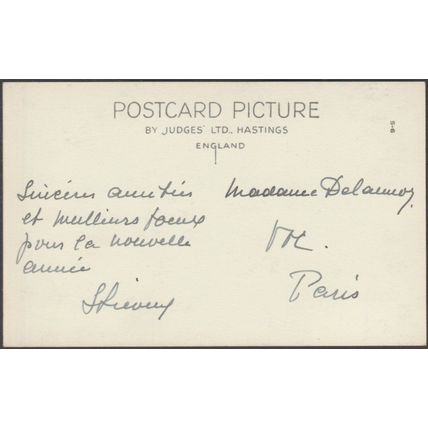 POSTCARD PICTURE
BY JUDGES' LTD., HASTINGS
ENGLAND
5-6
Sincères amitiés
et meilleurs voeux
pour la nouvelle
année
Madame Delaunoy
Paris